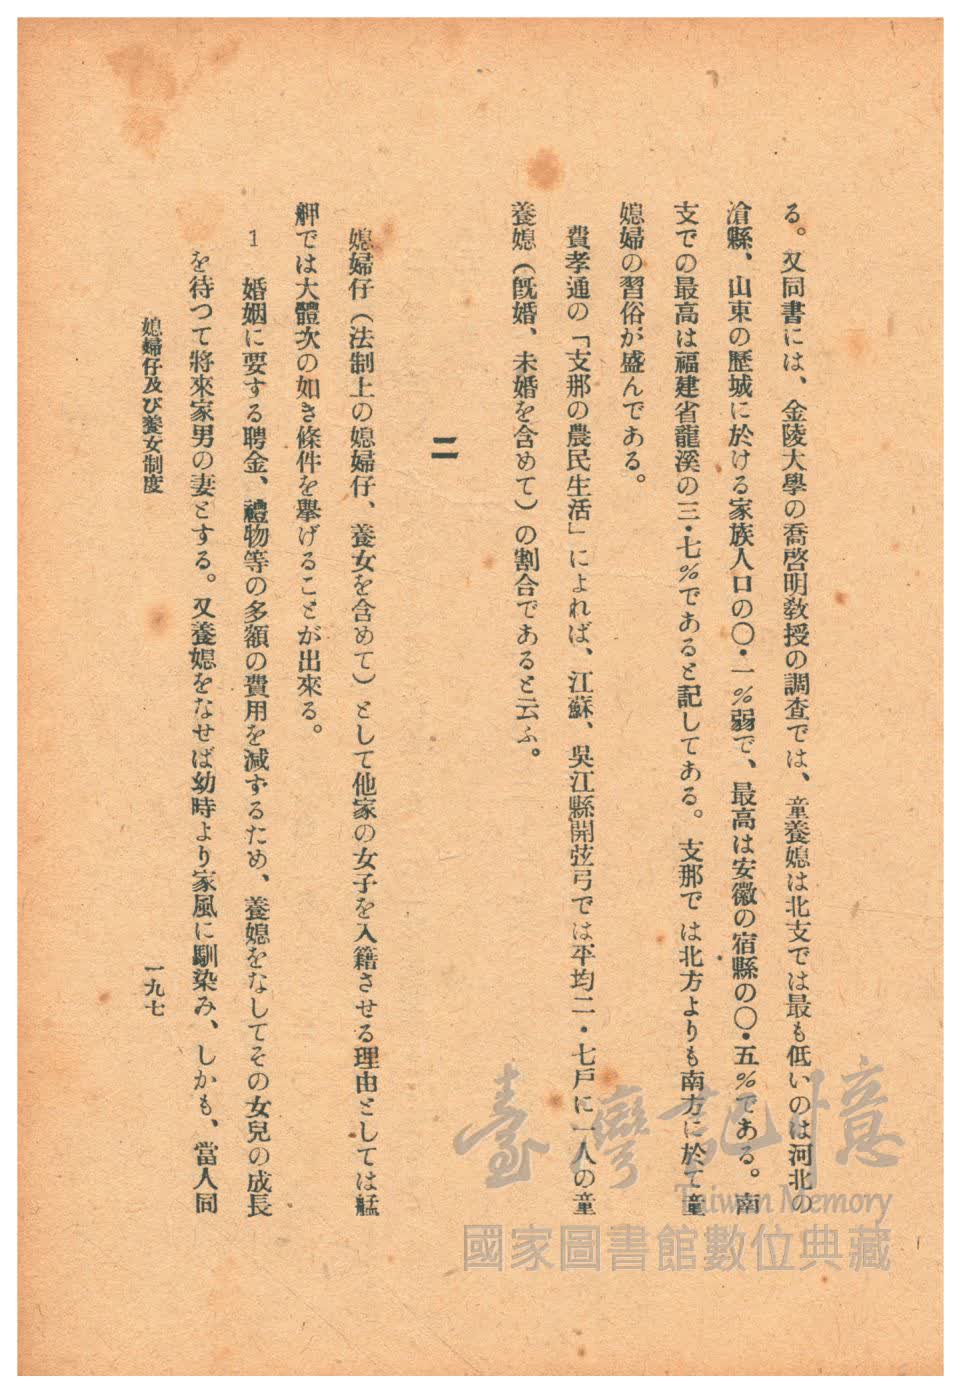 る。又同書には、金陵大學の喬啓明教授の調査では、童養媳は北支では最も低いのは河北の
滄縣、山東の歷城に於ける家族人口の〇・一％弱で、最高は安徽の宿縣の〇・五％である。南
支での最高は福建省龍溪の三・七％であると記してある。支那では北方よりも南方に於て童
媳婦の習俗が盛んである。
費孝通の「支那の農民生活」によれば、江蘇、吳江縣開弦弓では平均二・七戶に一人の童
養媳（旣婚、未婚を含めて）の割合であると云ふ。
二
媳婦仔（法制上の媳婦仔、養女を含めて）として他家の女子を入籍させる理由としては艋
舺では大體次の如き條件を擧げることが出來る。
1 婚姻に要する聘金、禮物等の多額の費用を減ずるため、養媳をなしてその女兒の成長
を待つて將來家男の妻とする。又養媳をなせば幼時より家風に馴染み、しかも、當人同
媳婦仔及び養女制度
一九七
臺灣記憶
Taiwan Memory
國家圖書館數位典藏